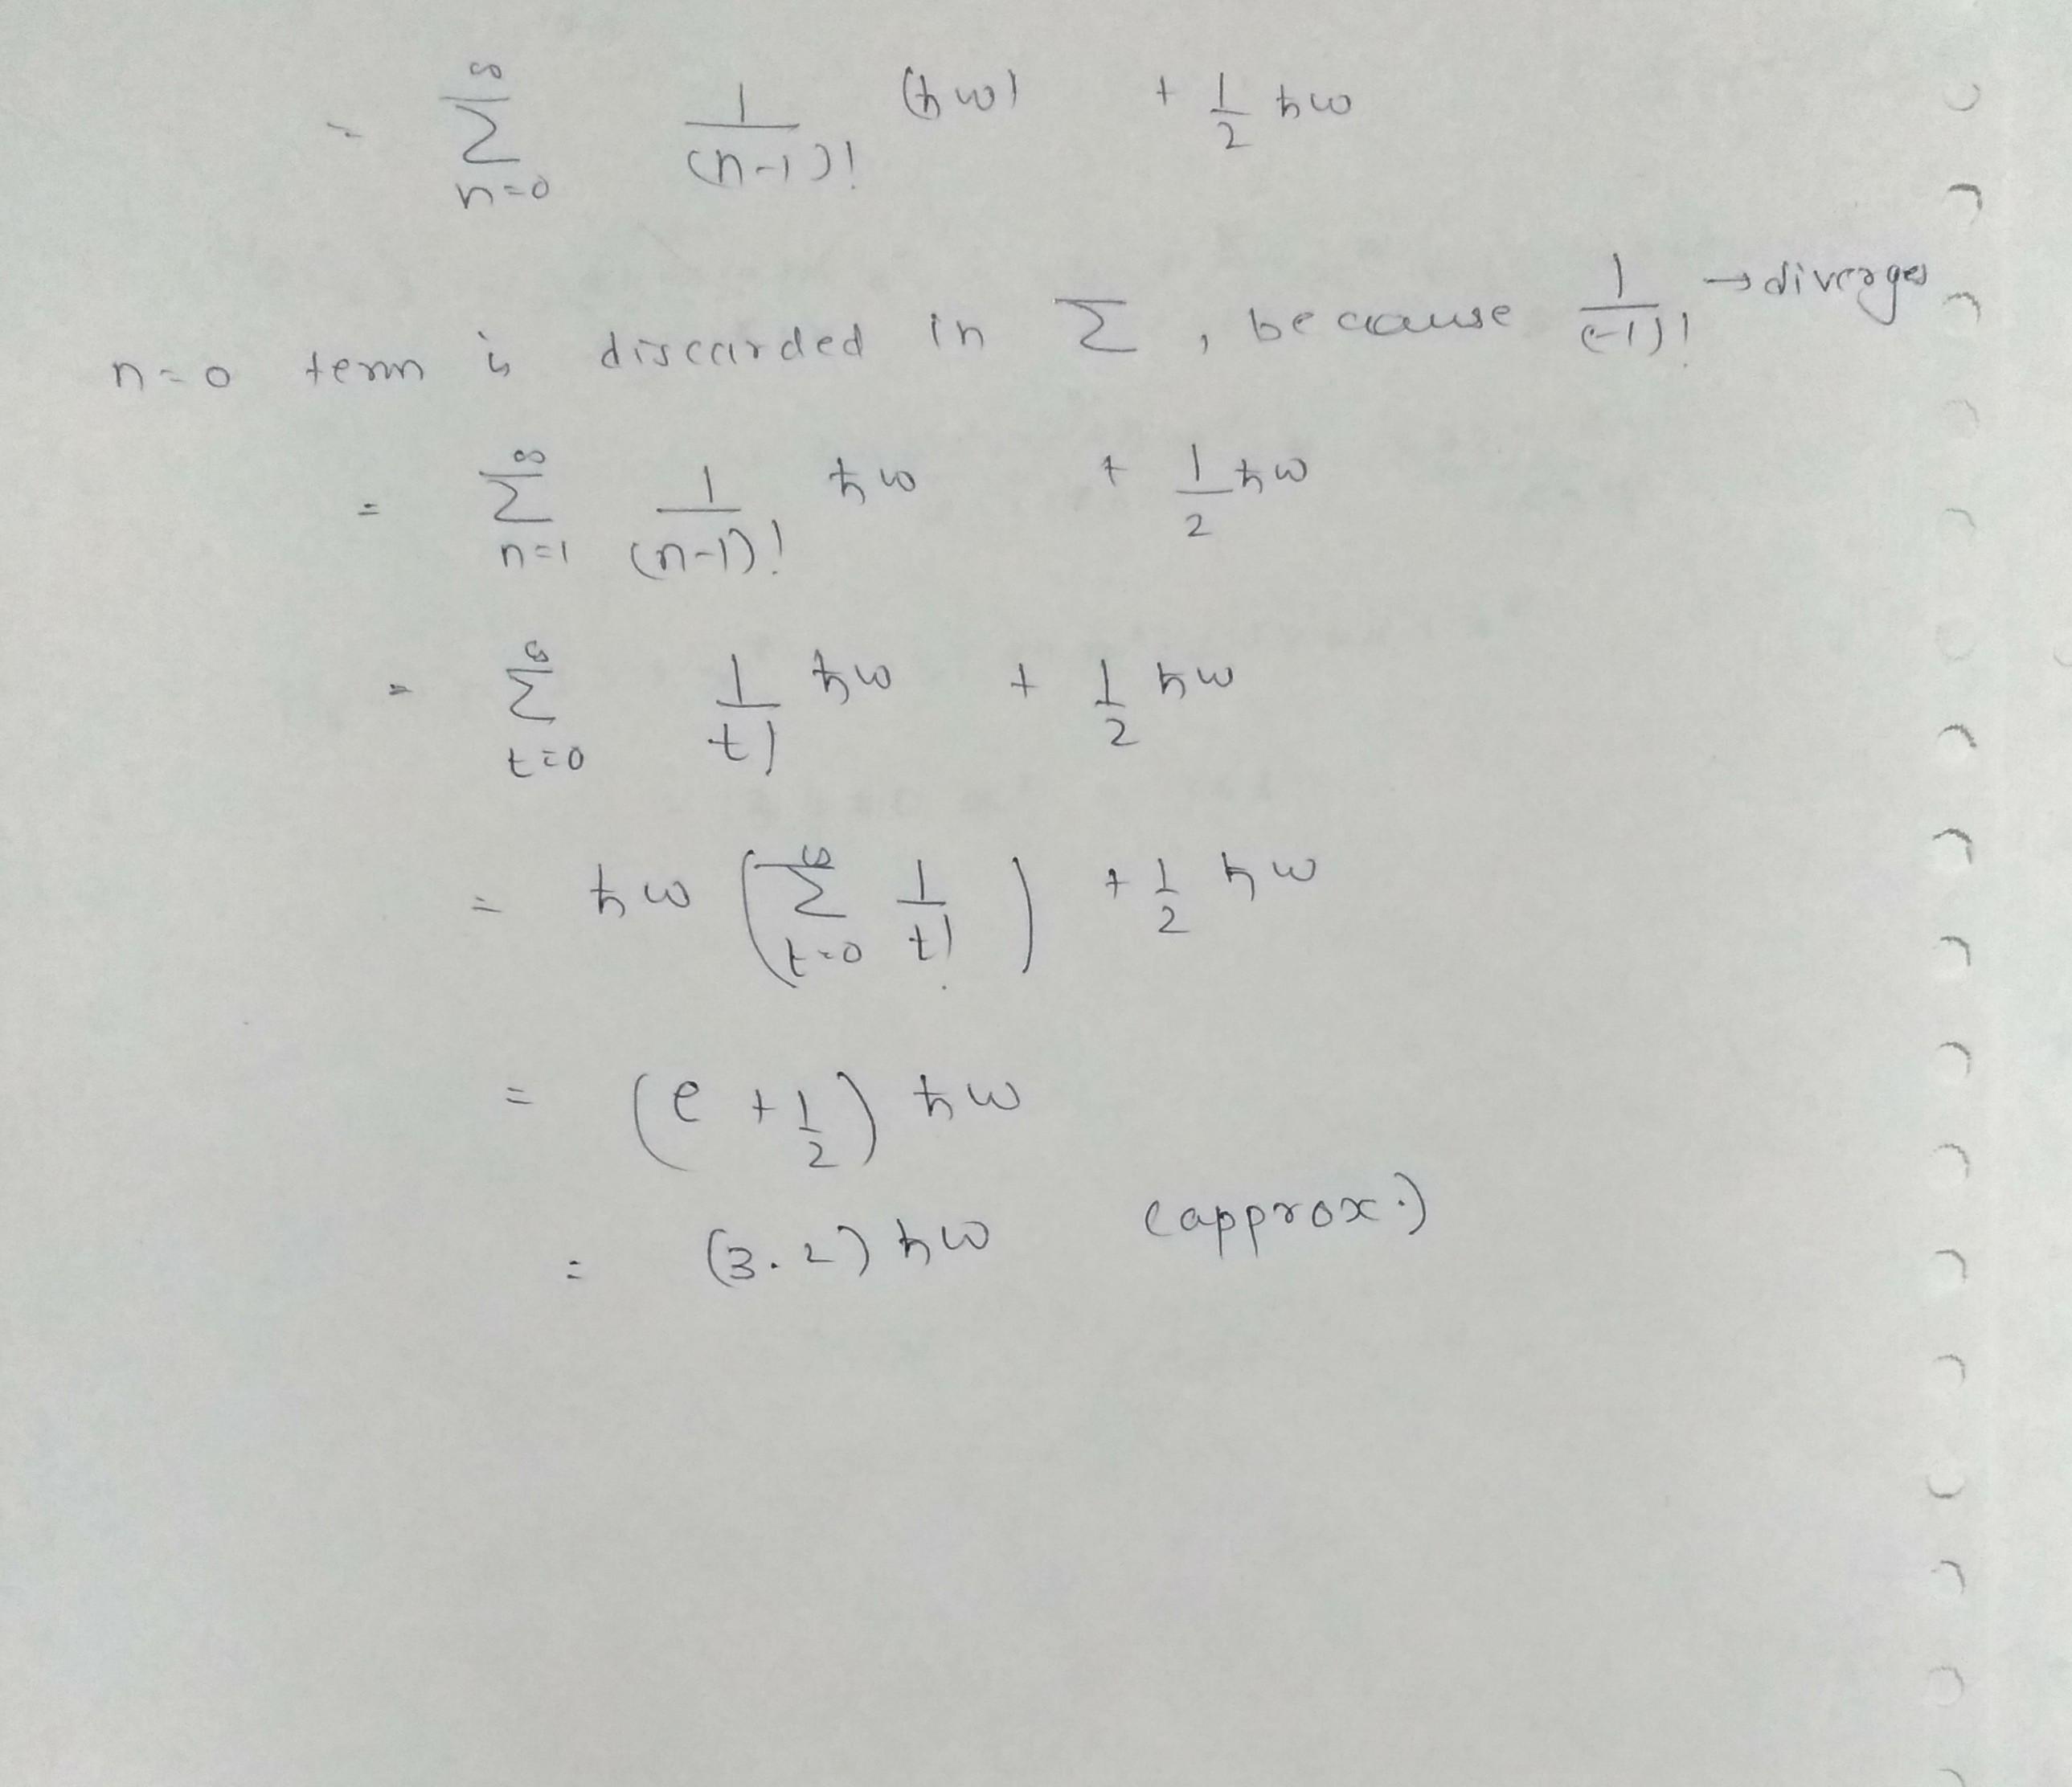 = ∑_{n=0}^{∞} 1/(n-1)! (ħω) + 1/2 ħω
n=0 term is discarded in Σ, because 1/(-1)! → diverges
= ∑_{n=1}^{∞} 1/(n-1)! ħω + 1/2 ħω
= ∑_{t=0}^{∞} 1/t! ħω + 1/2 ħω
= ħω (∑_{t=0}^{∞} 1/t!) + 1/2 ħω
= (e + 1/2) ħω
= (3.2) ħω (approx.)